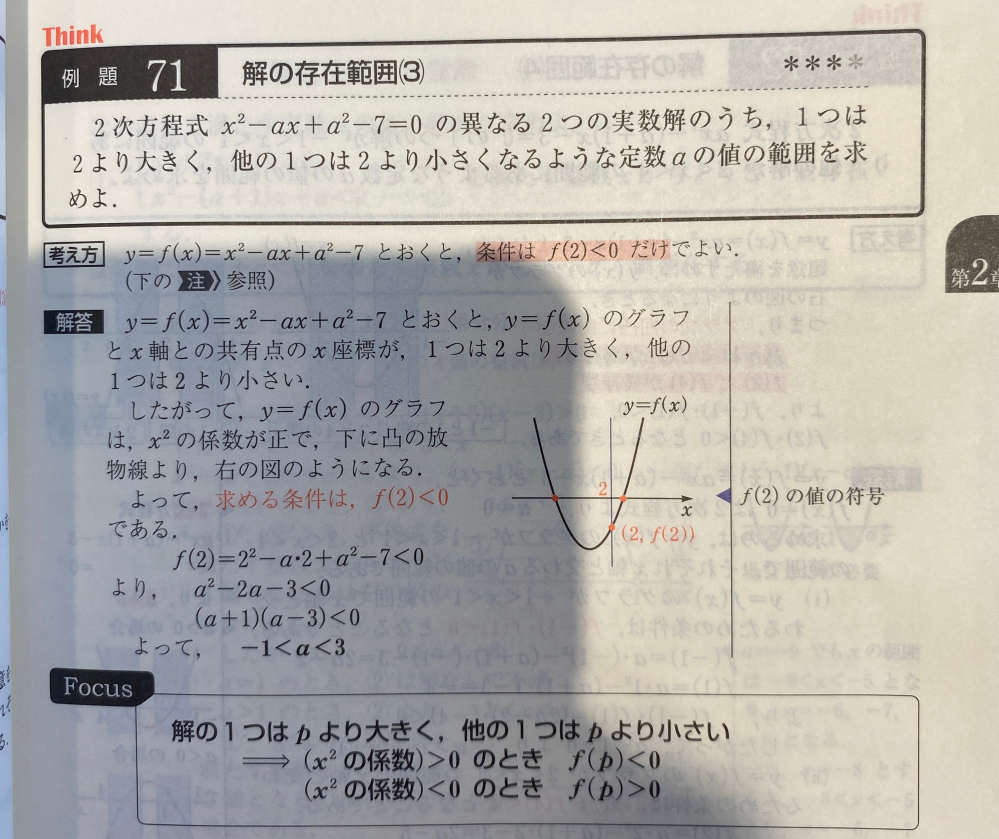 Think
例題 71 解の存在範囲(3) ****
2次方程式 x²−ax+a²−7=0 の異なる2つの実数解のうち，1つは
2より大きく，他の1つは2より小さくなるような定数 a の値の範囲を求
めよ．
考え方 y=f(x)=x²−ax+a²−7 とおくと，条件は f(2)<0 だけでよい．
(下の 注 》参照)
解答 y=f(x)=x²−ax+a²−7 とおくと，y=f(x) のグラフ
と x 軸との共有点の x 座標が，1つは2より大きく，他の
1つは2より小さい．
したがって，y=f(x) のグラフ
は，x² の係数が正で，下に凸の放
物線より，右の図のようになる．
よって，求める条件は，f(2)<0
である．
f(2)=2²−a・2+a²−7<0
より， a²−2a−3<0
(a+1)(a−3)<0
よって， −1<a<3
y=f(x)
2
x
(2, f(2))
◀ f(2) の値の符号
第2章
Focus
解の1つは p より大きく，他の1つは p より小さい
⟹ (x² の係数)>0 のとき f(p)<0
(x² の係数)<0 のとき f(p)>0